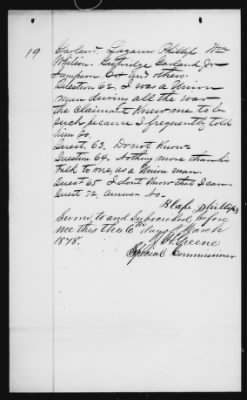 19
Garland Lazarus Phillips Wm
Wilson. Guthridge Garland Jr
Sampson Co and others.
Question 62. I was a Union
man during all the war
the claimant knew me to be
such because I frequently told
him so.
Quest. 63. Do not Know
Question 64. Nothing more than his
talk to me, as a Union man.
Quest 65 I dont Know that I can.
Quest 72 answer No.
Blake Phillips
Sworn to and subscribed before
me this the 6th day of March
1878.
Greene
Special Commissioner